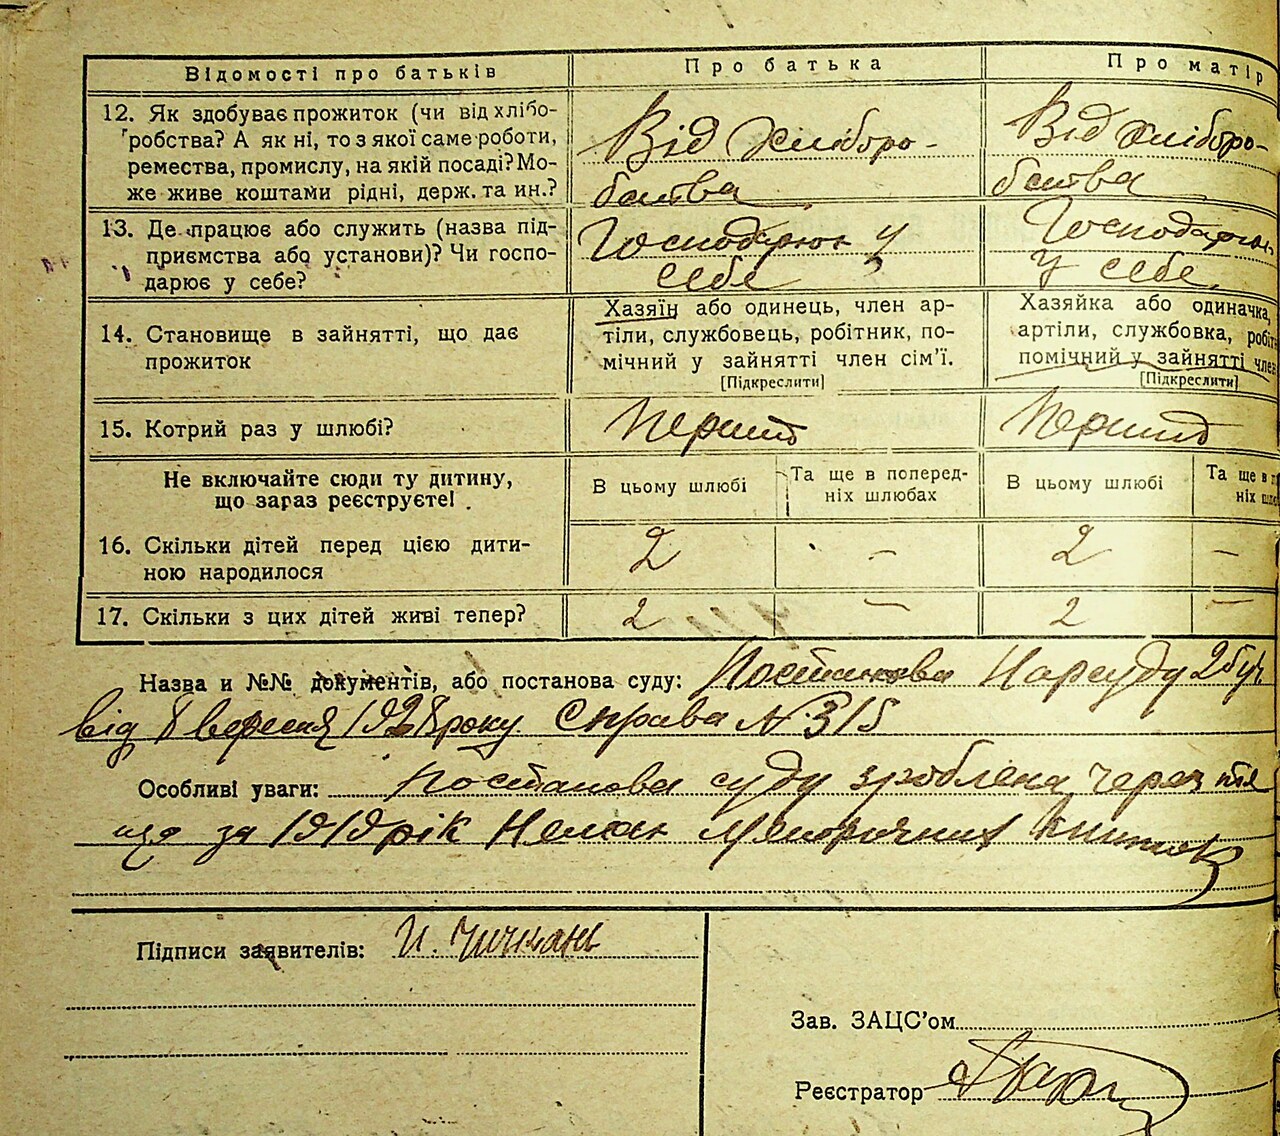 Відомості про батьків
Про батька
Про матір
12. Як здобуває прожиток (чи від хлібо-
робства? А як ні, то з якої саме роботи,
ремества, промислу, на якій посаді? Мо-
же живе коштами рідні, держ. та ин.?
Від хліборо-
бства
Від хліборо-
бства
13. Де працює або служить (назва під-
приємства або установи)? Чи госпо-
дарює у себе?
Господарює у
себе
Господарює
у себе
14. Становище в зайнятті, що дає
прожиток
Хазяїн або одинець, член ар-
тіли, службовець, робітник, по-
мічний у зайнятті член сім'ї.
[Підкреслити]
Хазяйка або одиначка,
артіли, службовка, робіт
помічний у зайнятті член
[Підкреслити]
15. Котрий раз у шлюбі?
Перший
Перший
Не включайте сюди ту дитину,
що зараз реєструєте!
В цьому шлюбі
Та ще в поперед-
ніх шлюбах
В цьому шлюбі
Та ще в п
ніх шлю
16. Скільки дітей перед цією дити-
ною народилося
2
–
2
–
17. Скільки з цих дітей живі тепер?
2
–
2
–
Назва и №№ документів, або постанова суду: Постанова Нарсуду
від 8 вересня 1928 року. Справа № 315
Особливі уваги: Постанова суду зроблена через те
що за 1919 рік Немає метричних книжок
Підписи заявителів: И. Чичкань
Зав. ЗАЦС'ом
Реєстратор